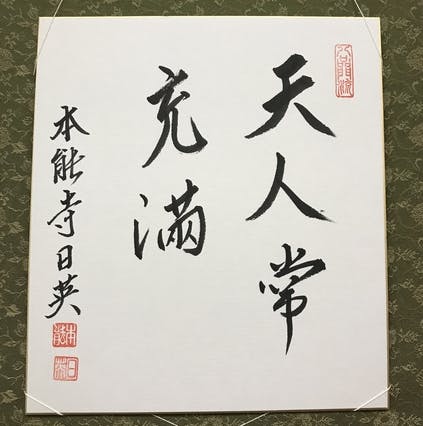 天人常
充満
本能寺日英